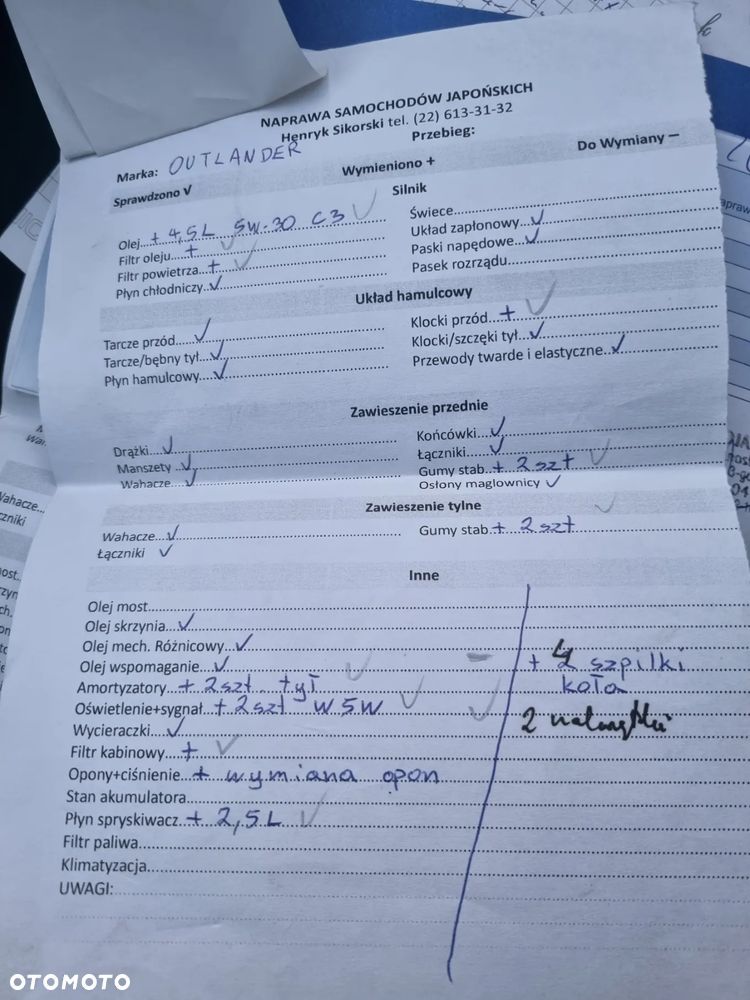 NAPRAWA SAMOCHODÓW JAPOŃSKICH
Henryk Sikorski tel. (22) 613-31-32
Marka: OUTLANDER Przebieg:
Sprawdzono V Wymieniono + Do Wymiany –
Silnik
Olej + 4,5L 5W-30 C3 V Świece
Filtr oleju + V Układ zapłonowy V
Filtr powietrza + V Paski napędowe V
Płyn chłodniczy V Pasek rozrządu
Układ hamulcowy
Tarcze przód V Klocki przód + V
Tarcze/bębny tył V Klocki/szczęki tył V
Płyn hamulcowy V Przewody twarde i elastyczne V
Zawieszenie przednie
Drążki V Końcówki V
Manszety V Łączniki V
Wahacze V Gumy stab. + 2szt V
Osłony maglownicy V
Zawieszenie tylne
Wahacze V Gumy stab + 2szt V
Łączniki V
Inne
Olej most
Olej skrzynia V
Olej mech. Różnicowy V
Olej wspomaganie V – + 4 szpilki
Amortyzatory + 2szt. tył V koła
Oświetlenie+sygnał + 2szt W5W V V 2
Wycieraczki V
Filtr kabinowy + V
Opony+ciśnienie + wymiana opon
Stan akumulatora
Płyn spryskiwacz + 2,5L V
Filtr paliwa
Klimatyzacja
UWAGI:
OTOMOTO